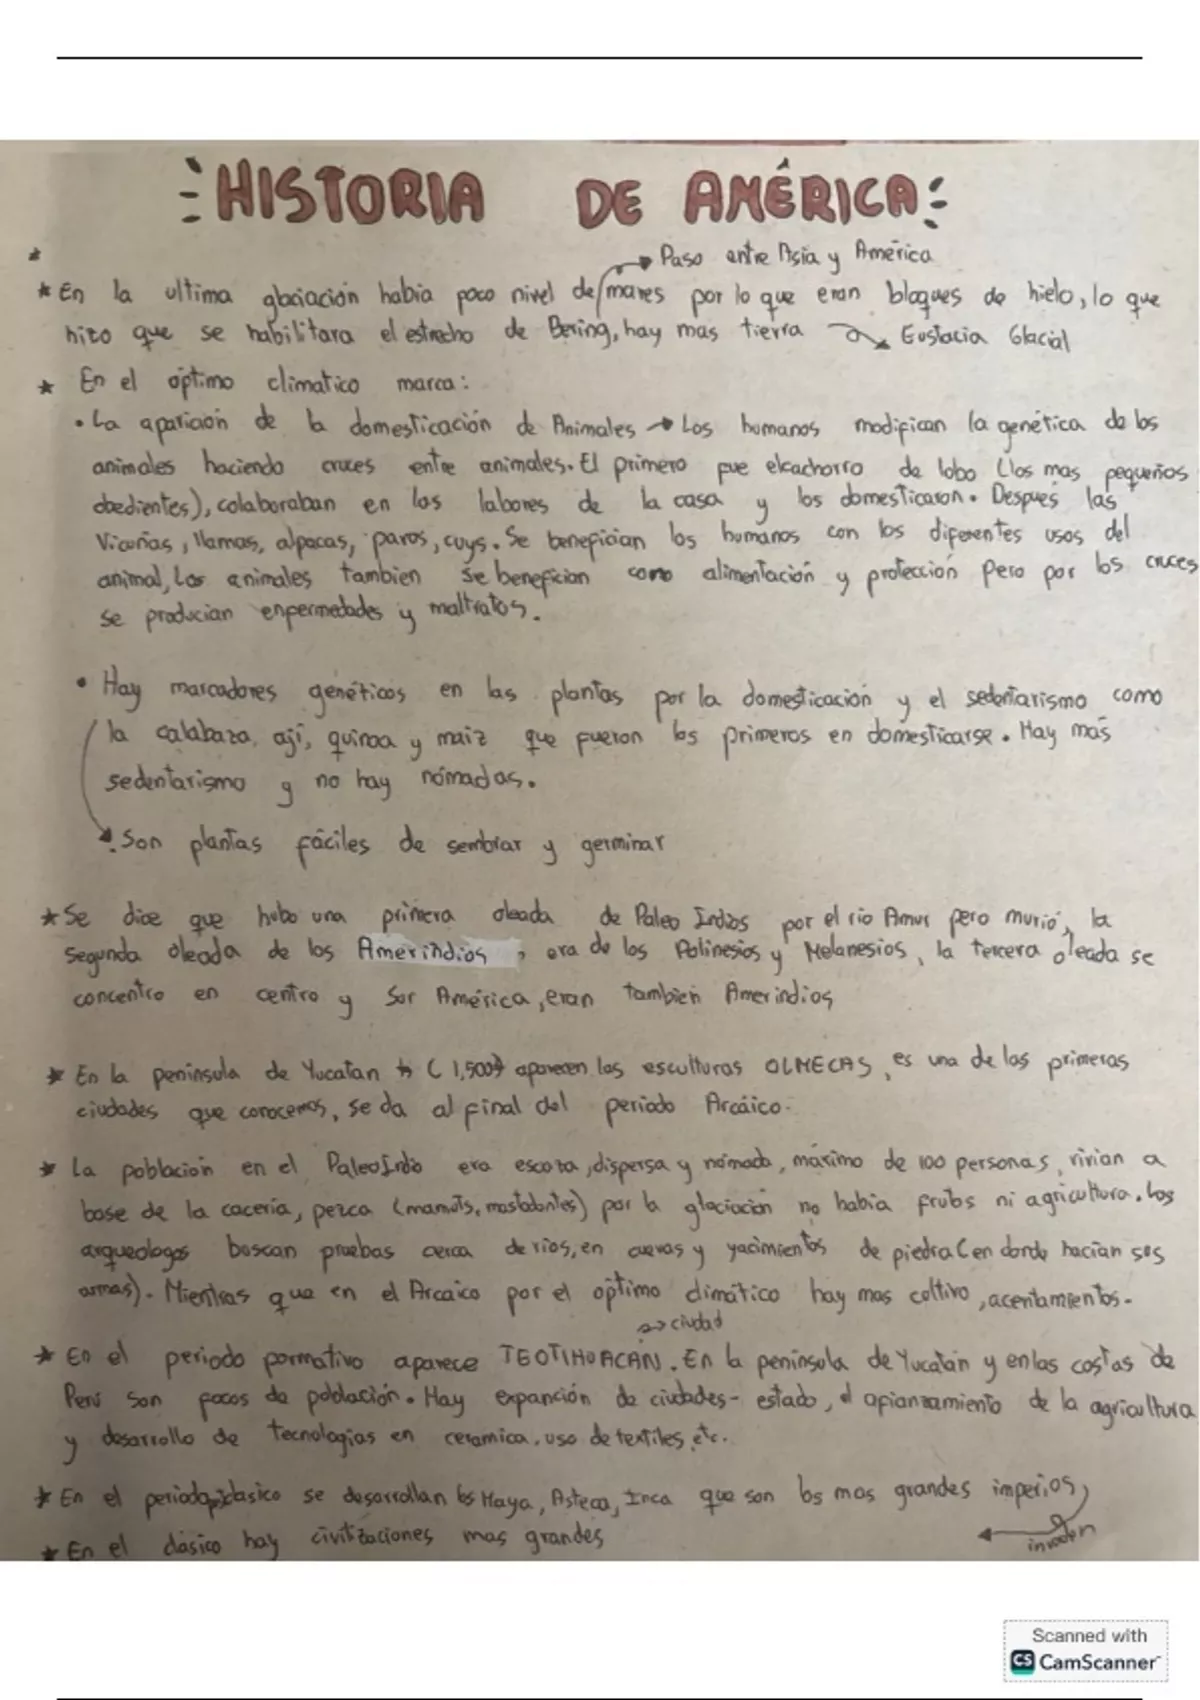 HISTORIA DE AMÉRICA
Paso entre Asia y América
* En la ultima glaciación habia poco nivel de mares por lo que eran bloques de hielo, lo que
hizo que se habilitara el estrecho de Bering, hay mas tierra → Eustacia Glacial
* En el optimo climatico marca:
• La aparición de la domesticación de Animales → Los humanos modifican la genética de los
animales haciendo cruces entre animales. El primero fue el cachorro de lobo (los mas pequeños
obedientes), colaboraban en las labores de la casa y los domesticaron. Después las
Vicuñas, llamas, alpacas, pavos, cuys. Se benefician los humanos con los diferentes usos del
animal, Los animales tambien se benefician como alimentación y protección pero por los cruces
se producian enfermedades y maltratos.
• Hay marcadores genéticos en las plantas por la domesticación y el sedentarismo como
la calabaza, ají, quinoa y maiz que fueron los primeros en domesticarse. Hay más
sedentarismo y no hay nómadas.
Son plantas fáciles de sembrar y germinar
* Se dice que hubo una primera oleada de Paleo Indios por el rio Amur pero murió, la
segunda oleada de los Amerindios, era de los Polinesios y Melanesios, la tercera oleada se
concentro en centro y Sur América, eran tambien Amerindios
* En la peninsula de Yucatan (1,500) aparecen las esculturas OLMECAS, es una de las primeras
ciudades que conocemos, se da al final del periodo Arcáico.
* La población en el PaleoIndio era escaza, dispersa y nómada, máximo de 100 personas, vivian a
base de la caceria, pezca (mamuts, mastodontes) por la glaciación no habia frutos ni agricultura. Los
arqueologos buscan pruebas cerca de rios, en cuevas y yacimientos de piedra (en donde hacian sus
armas). Mientras que en el Arcaico por el optimo climático hay mas coltivo, acentamientos.
→ ciudad
* En el periodo formativo aparece TEOTIHUACÁN. En la peninsula de Yucatán y en las costas de
Perú son focos de población. Hay expanción de ciudades-estado, el afianzamiento de la agricultura
y desarrollo de tecnologias en ceramica, uso de textiles, etc.
* En el periodo clasico se desarrollan los Maya, Azteca, Inca que son los mas grandes imperios,
invaden
* En el clásico hay civilizaciones mas grandes
Scanned with
CS CamScanner